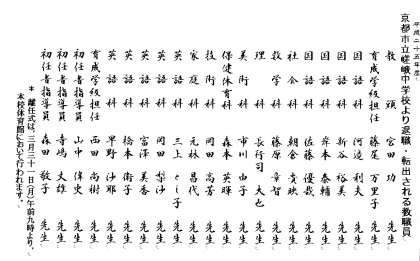 平成二十五年度
京都市立嵯峨中学校より退職・転出される教職員
教頭 宮田 功 先生
育成学級担任 藤尾 万里子 先生
国語科 河邉 利夫 先生
国語科 新谷 裕美 先生
国語科 岸本 泰輔 先生
社会科 佐藤 優哉 先生
社会科 朝倉 貴映 先生
数学科 藤原 章智 先生
理科 長行司 大也 先生
美術科 市川 由子 先生
保健体育科 森本 英暉 先生
技術科 岡田 高芳 先生
家庭科 元林 昌代 先生
英語科 三上 とし子 先生
英語科 岡田 梨沙 先生
英語科 富澤 美香 先生
英語科 橋本 衛子 先生
英語科 早野 沙耶 先生
育成学級担任 西田 尚樹 先生
初任者指導員 山中 偉史 先生
初任者指導員 寺嶋 文雄 先生
初任者指導員 森田 敬子 先生
＊ 離任式は、三月三十一日(月)午前九時より、
本校体育館において行われます。